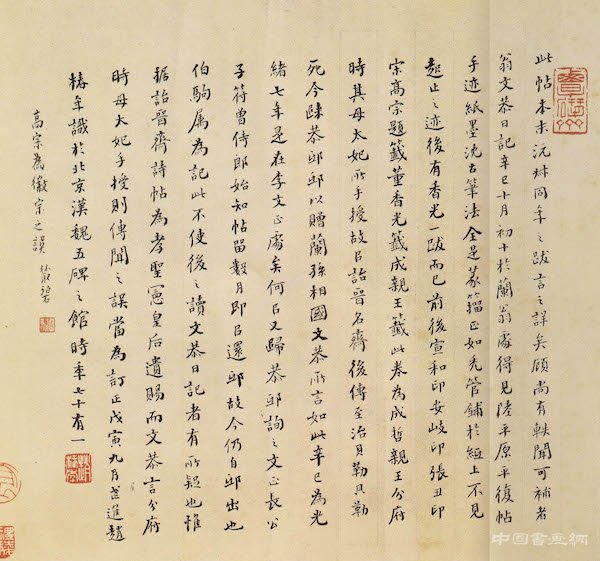 此帖本末沅尗同年之跋言之詳矣顧尚有軼聞可補者
翁文恭日記辛巳十月初十於蘭翁處得見陸平原平復帖
手迹紙墨沈古筆法全是篆籀正如禿管鋪於紙上不見
起止之迹後有香光一跋而已前後宣和印安岐印張丑印
宗高宗題籤董香光籤成親王籤此卷為成哲親王分府
時其母太妃所手授故以詒晉名齋後傳至治貝勒貝勒
死今隸恭邸邸以贈蘭孫相國文恭所言如此辛巳為光
緒七年是在李文正處矣何以又歸恭邸詢之文正長公
子符曾侍郎始知帖留數月即以還邸故今仍自邸出也
伯駒属為記此不使後之讀文恭日記者有所疑也惟
據詒晉齋詩帖為孝聖憲皇后遺賜而文恭言分府
時母太妃手授則傳聞之誤當為訂正戊寅九月武進趙
椿年識於北京漢魏五碑之館時年七十有一
高宗為徽宗之誤 叢碧
中国書画網